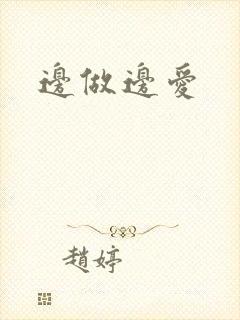 邊做邊愛
趙婷